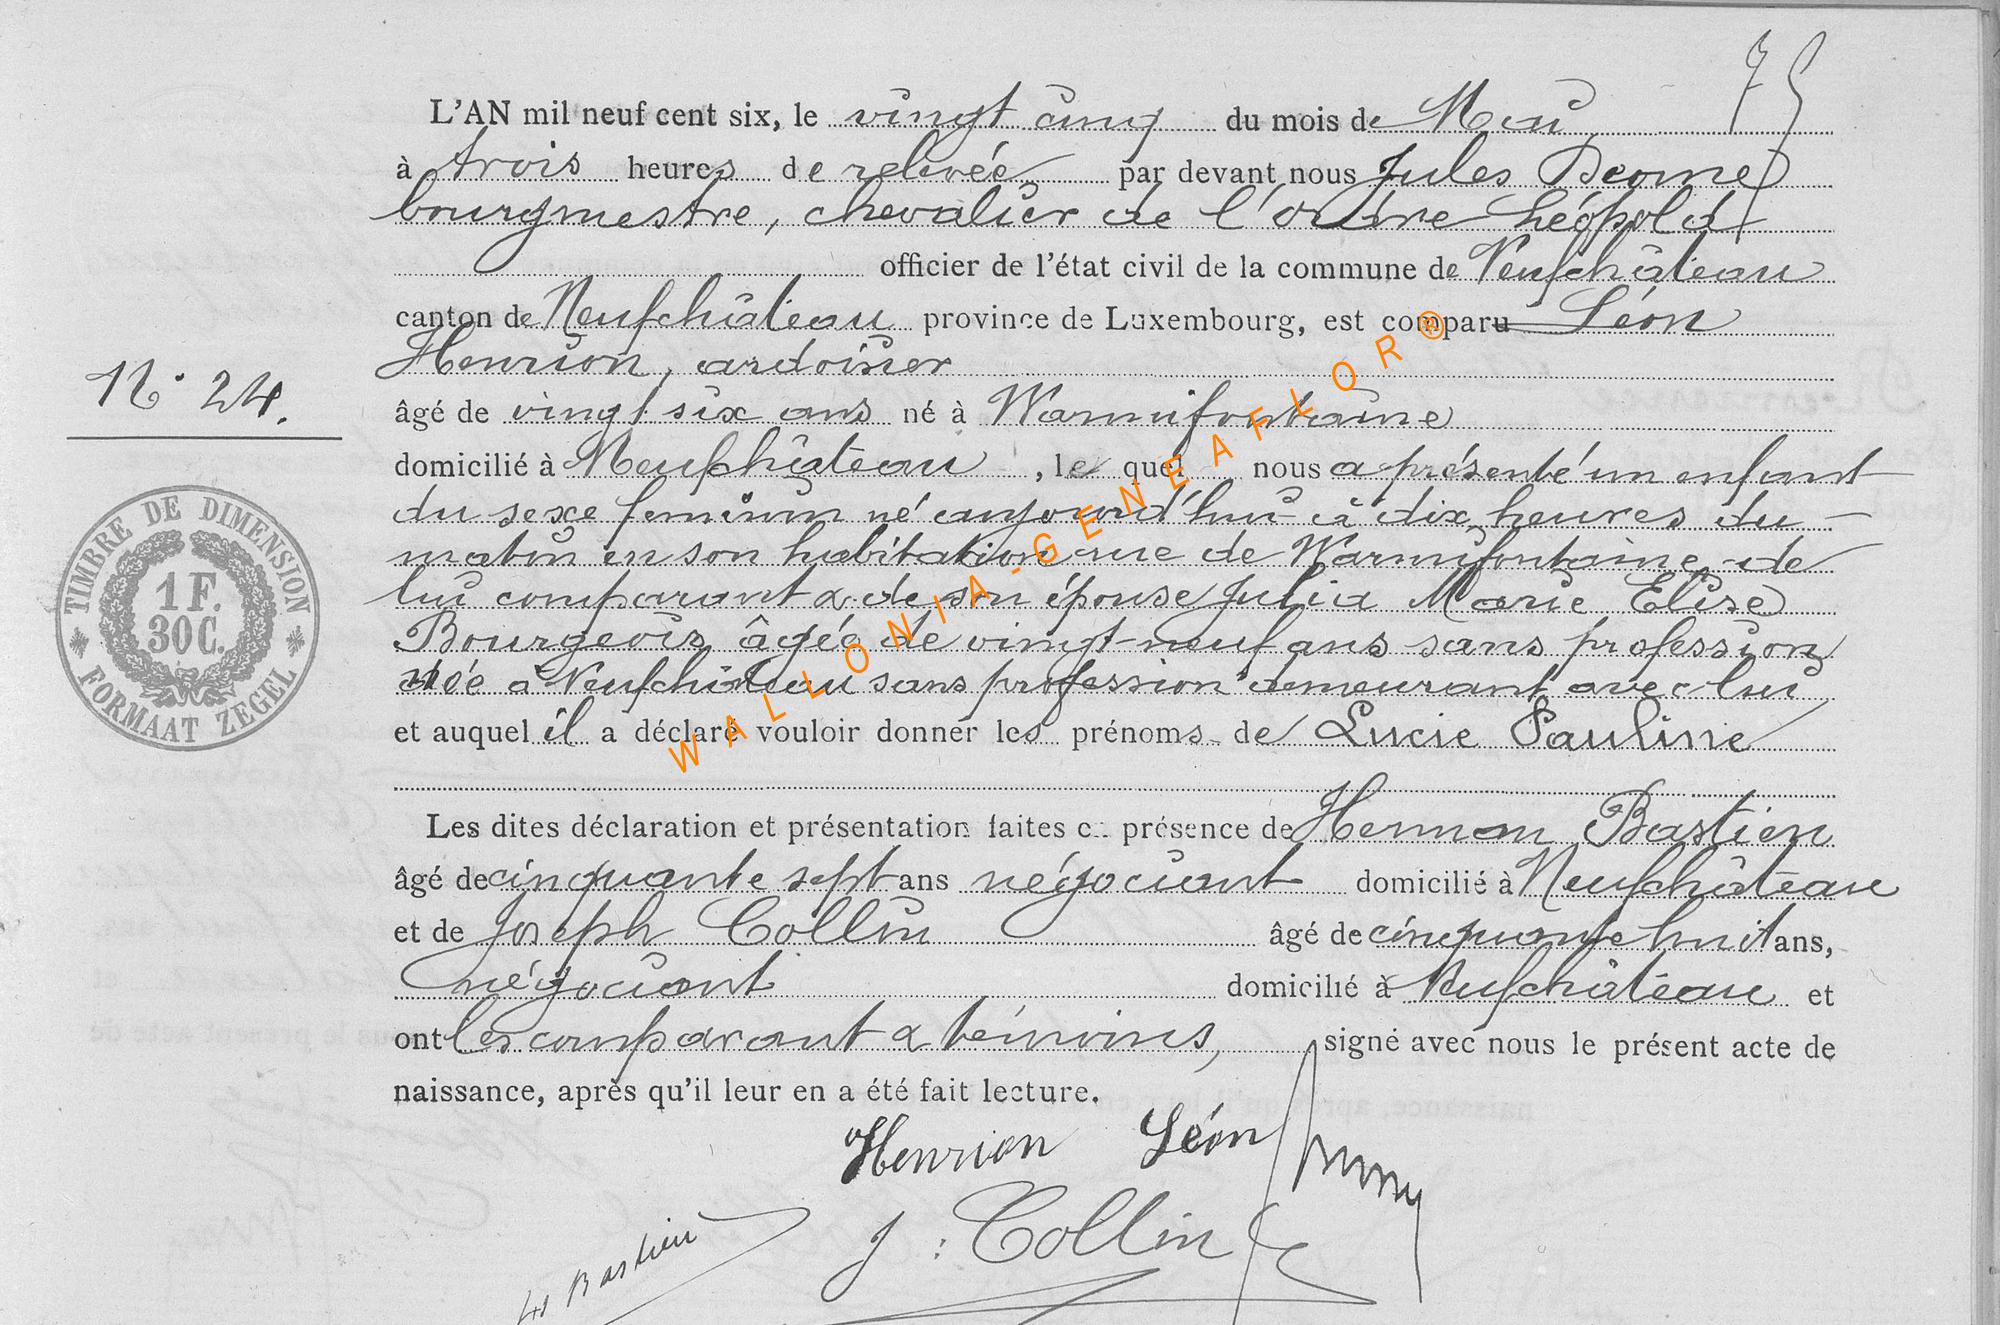 75
L'AN mil neuf cent six, le vingt cinq du mois de Mai
à trois heures de relevée par devant nous Jules
bourgmestre, chevalier de l'ordre Léopold
officier de l'état civil de la commune de Neufchâteau
canton de Neufchâteau province de Luxembourg, est comparu Léon
Henrion, ardoisier
N° 24.
âgé de vingt six ans né à Warmifontaine
domicilié à Neufchâteau, le quel nous a présenté un enfant
du sexe feminin né aujourd'hui à dix heures du
matin en son habitation rue de Warmifontaine de
lui comparant & de son épouse Julia Marie Elise
Bourgeois âgée de vingt-neuf ans sans profession
née à Neufchâteau sans profession demeurant avec lui
et auquel il a déclaré vouloir donner les prénoms de Lucie Pauline
Les dites déclaration et présentation faites en présence de Bastien
âgé de cinquante sept ans négociant domicilié à Neufchâteau
et de Joseph Collin âgé de cinquante huit ans,
négociant domicilié à Neufchâteau et
ont les comparant & témoins, signé avec nous le présent acte de
naissance, après qu'il leur en a été fait lecture.
Henrion Léon
J. Collin
Bastien
TIMBRE DE DIMENSION
1 F.
30 C.
FORMAAT ZEGEL
WALLONIA-GENEAFLOR®